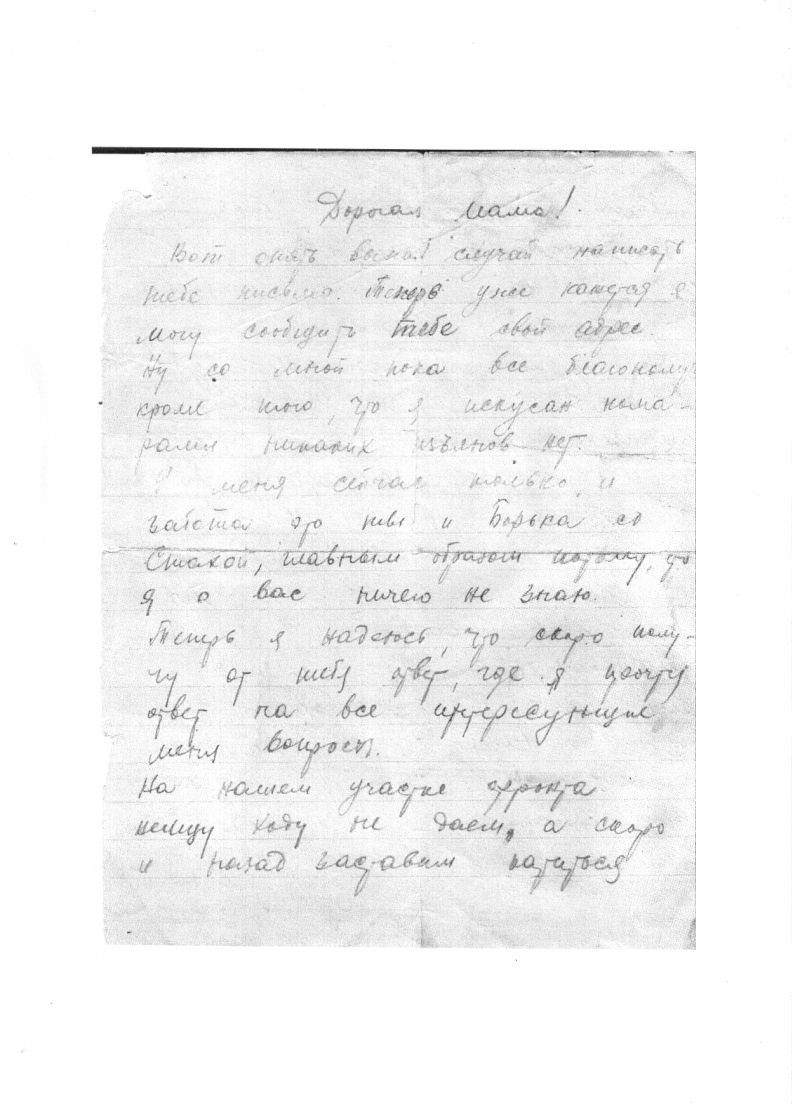 Дорогая Мама!
Вот опять выпал случай написать
тебе письмо. Теперь уже кажется я
могу сообщить тебе свой адрес.
Ну со мной пока все благополуч
кроме того, что я искусан кома-
рами никаких изъянов нет.
У меня сейчас только и
забота это ты и Борька со
Стахой, главным образом потому, что
я о вас ничего не знаю.
Теперь я надеюсь, что скоро полу-
чу от тебя ответ, где я прочту
ответ на все интересующие
меня вопросы.
На нашем участке фронта
немцу ходу не даем, а скоро
и назад заставим катиться